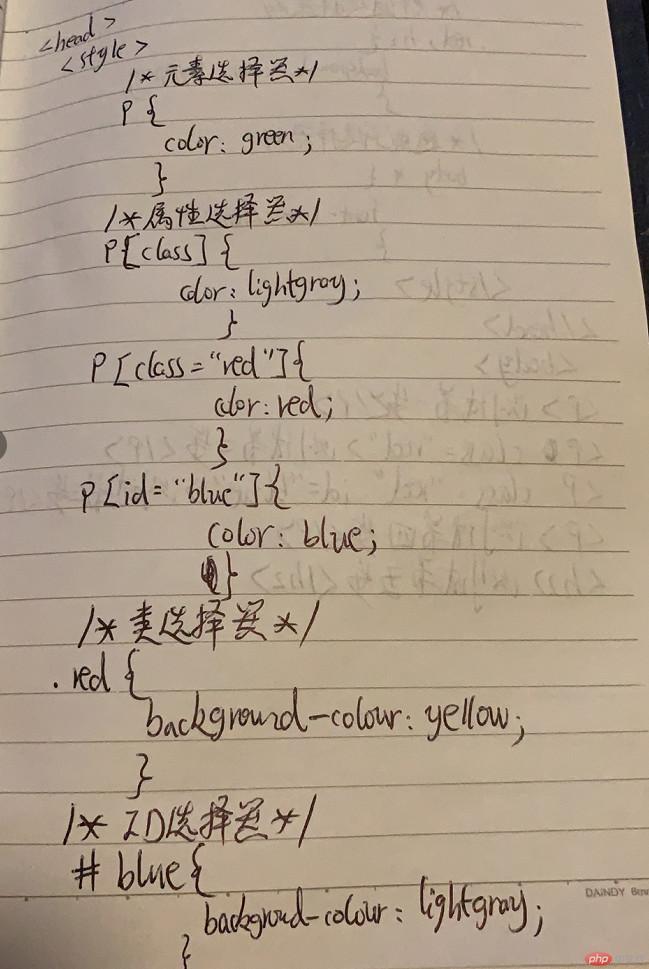 <head>
<style>
/* 元素选择器*/
P {
color: green;
}
/*属性选择器*/
P[class] {
color: lightgray;
}
P[class="red"]{
color: red;
}
P[id="blue"]{
color: blue;
}
/* 类选择器*/
.red {
background-colour: yellow;
}
/* ID选择器*/
# blue{
backgroud-colour: lightgray;
}
DAiNDY
php